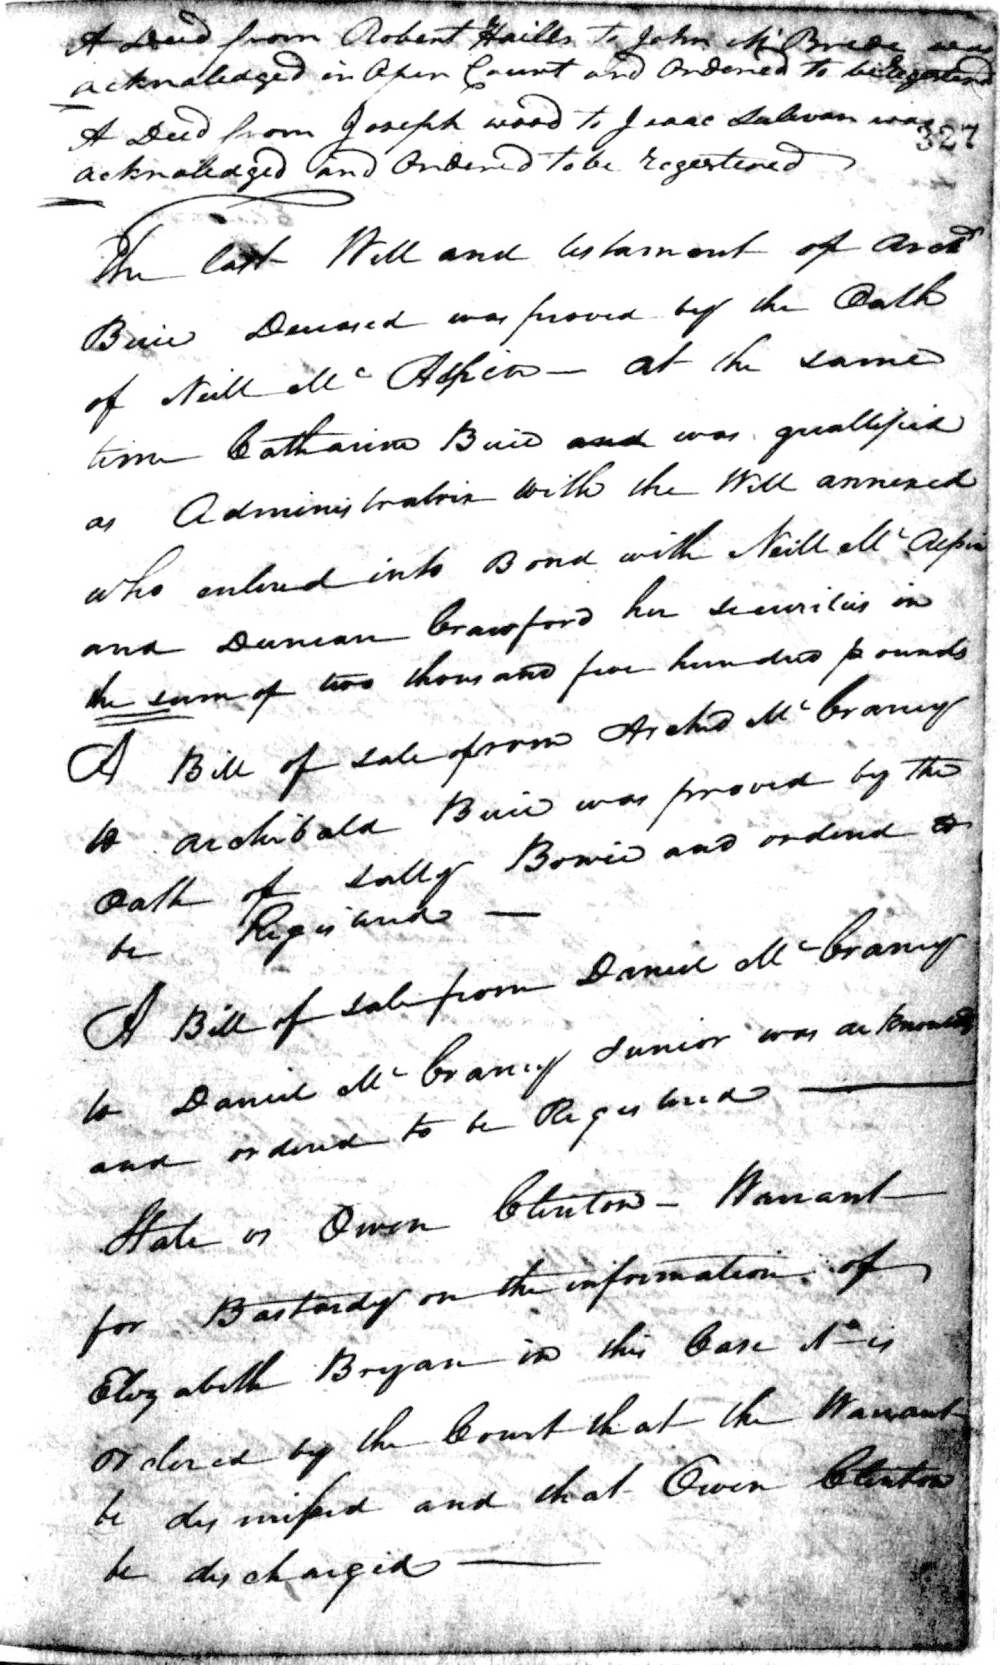 A Deed from Robert Haills to John McBride was
acknaledged in Open Court and Ordened to be Regestered
A Deed from Joseph wood to Isaac Sulevan was
327
acknaledged and Ordened to be regestered
The last Will and testament of Archd
Buie Deceased was proved by the Oath
of Neill Mc Alpin — at the same
time Catharine Buie and was quallified
as Administratrix with the Will annexed
who entered into Bond with Neill Mc Alpin
and Duncan Crawford her securities in
the sum of two thousand five hundred pounds
A Bill of sale from Archd Mc Craney
to Archibald Buie was proved by the
Oath of Sally Bowie and ordered to
be Registered —
A Bill of sale from Daniel Mc Craney
to Daniel Mc Craney Junior was acknowledged
and ordered to be Registered —
State vs Owen Clinton — Warrant
for Bastardy on the information of
Elizabeth Bryan in this Case it is
ordered by the Court that the Warrant
be dismissed and that Owen Clinton
be discharged —